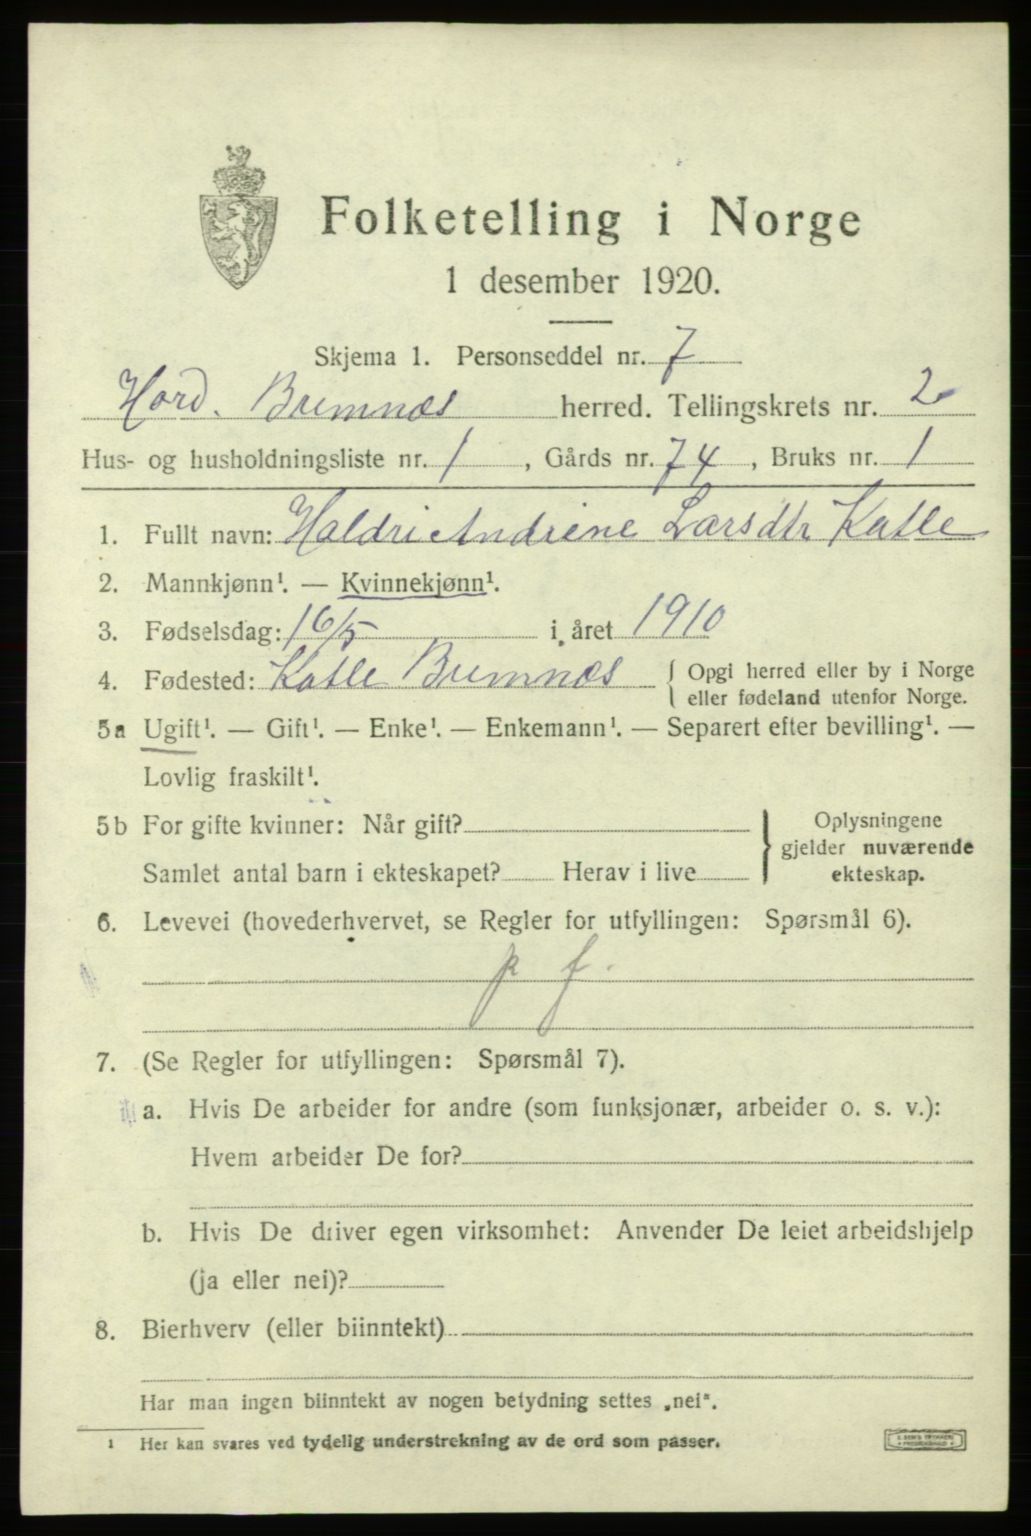 Folketelling i Norge
1 desember 1920.
Skjema 1. Personseddel nr. 7
Hord. Bremnæs herred. Tellingskrets nr. 2
Hus- og husholdningsliste nr. 1, Gårds nr. 74, Bruks nr. 1
1. Fullt navn: Haldri Andrine Larsdtr Katle
2. Mannkjønn¹. — Kvinnekjønn¹.
3. Fødselsdag: 16/5 i året 1910
4. Fødested: Katle Bremnæs { Opgi herred eller by i Norge
eller fødeland utenfor Norge.
5a Ugift¹. — Gift¹. — Enke¹. — Enkemann¹. — Separert efter bevilling¹. —
Lovlig fraskilt¹.
5b For gifte kvinner: Når gift?
Samlet antal barn i ekteskapet? Herav i live
} Oplysningene
gjelder nuværende
ekteskap.
6. Levevei (hovederhvervet, se Regler for utfyllingen: Spørsmål 6).
p f.
7. (Se Regler for utfyllingen: Spørsmål 7).
a. Hvis De arbeider for andre (som funksjonær, arbeider o. s. v.):
Hvem arbeider De for?
b. Hvis De driver egen virksomhet: Anvender De leiet arbeidshjelp
(ja eller nei)?
8. Bierhverv (eller biinntekt)
Har man ingen biinntekt av nogen betydning settes „nei“.
¹ Her kan svares ved tydelig understrekning av de ord som passer.